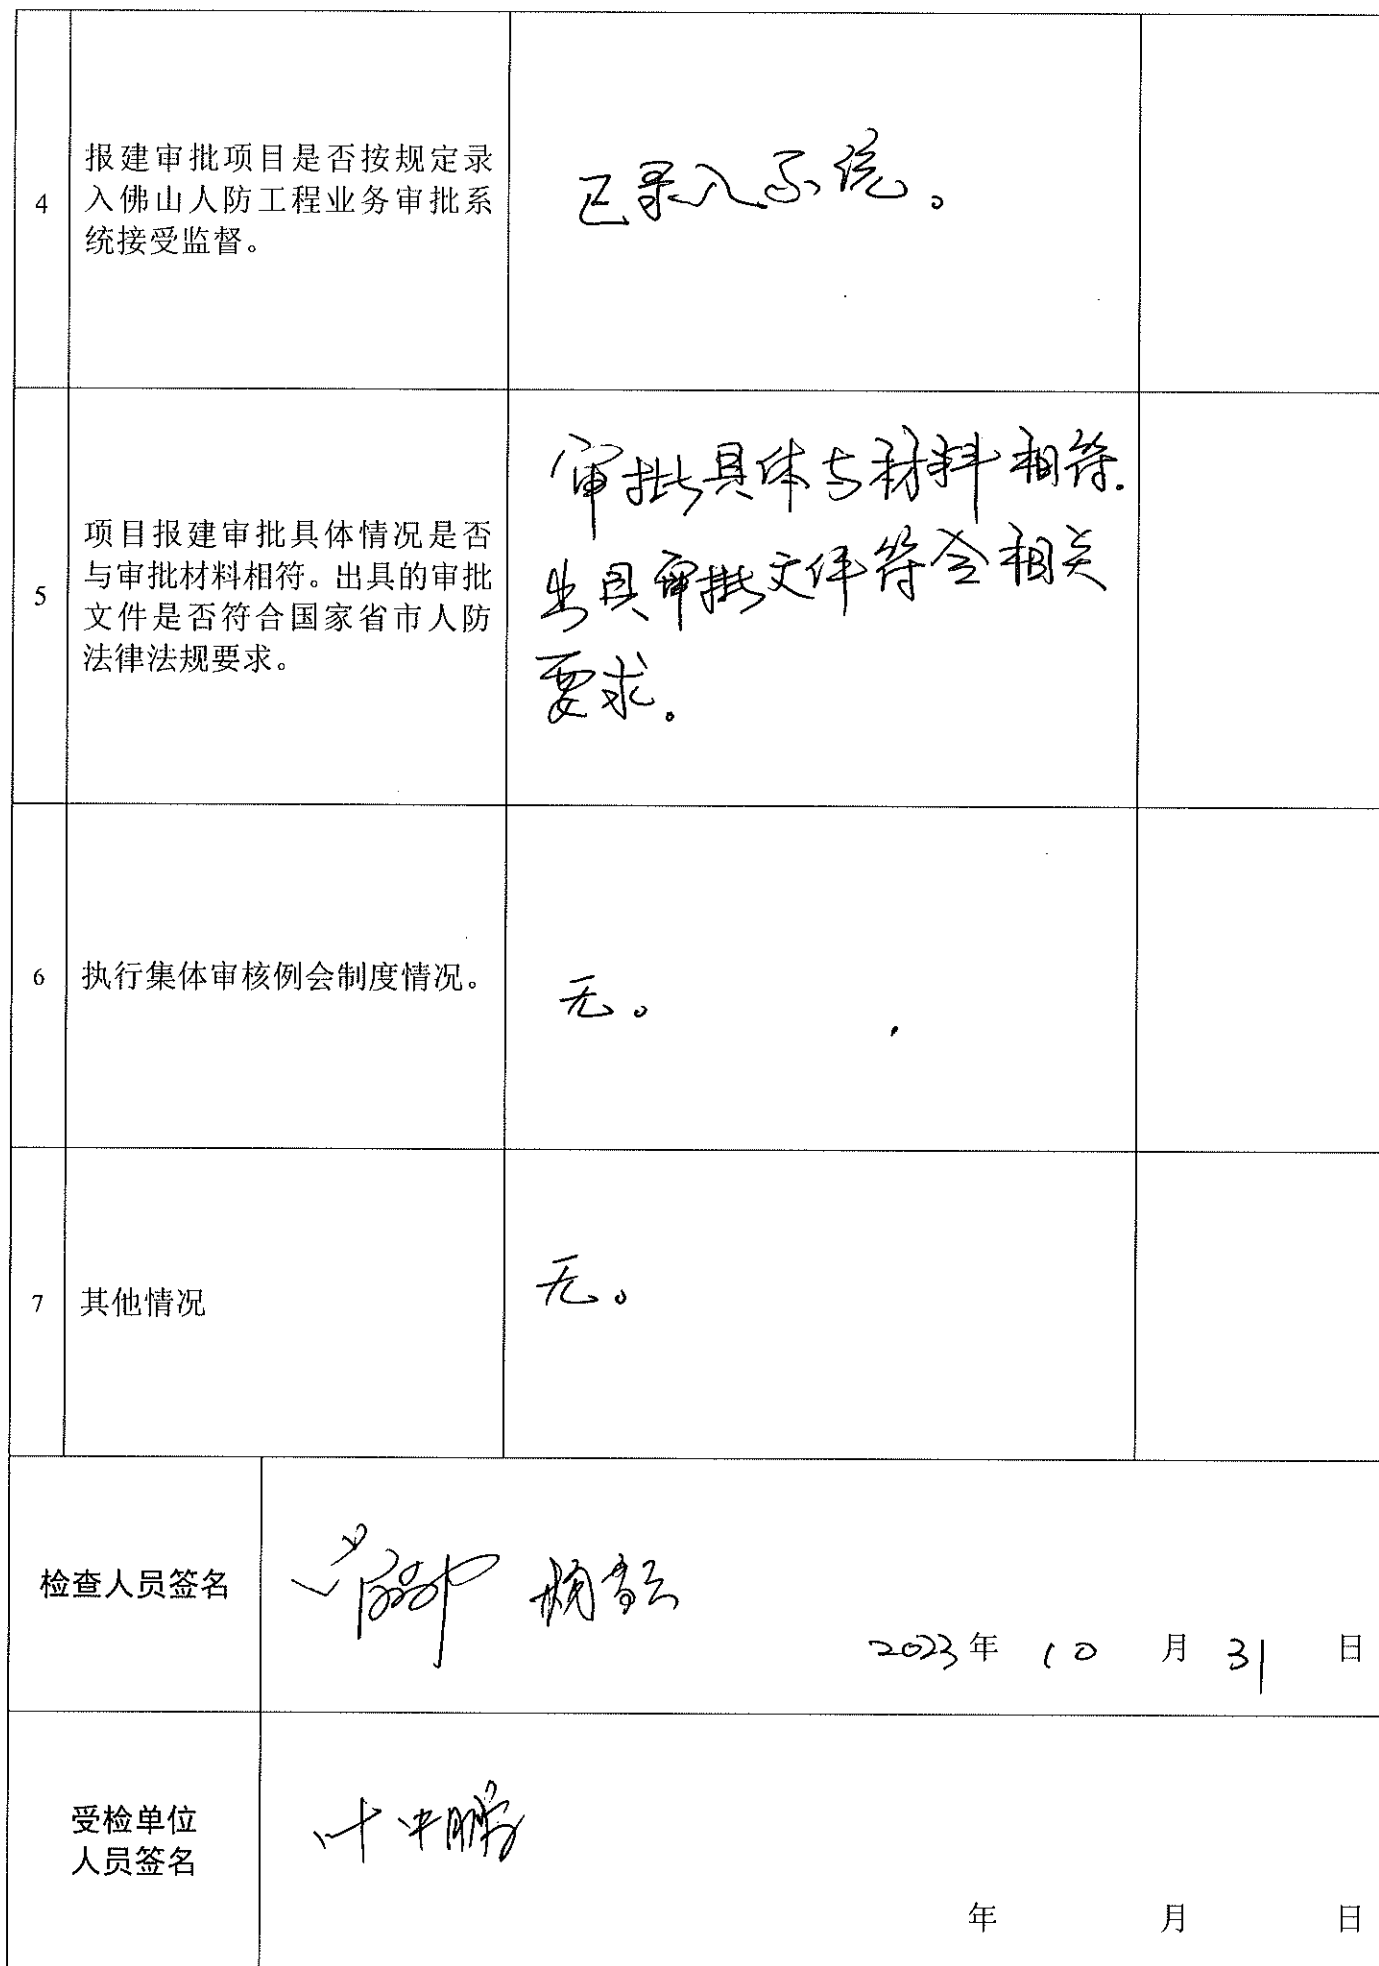 4
报建审批项目是否按规定录
入佛山人防工程业务审批系
统接受监督。
已录入系统。
5
项目报建审批具体情况是否
与审批材料相符。出具的审批
文件是否符合国家省市人防
法律法规要求。
审批具体与材料相符.
出具审批文件符合相关
要求。
6
执行集体审核例会制度情况。
无。
7
其他情况
无。
检查人员签名
2023年 10 月 31 日
受检单位
人员签名
叶中鹏
年 月 日